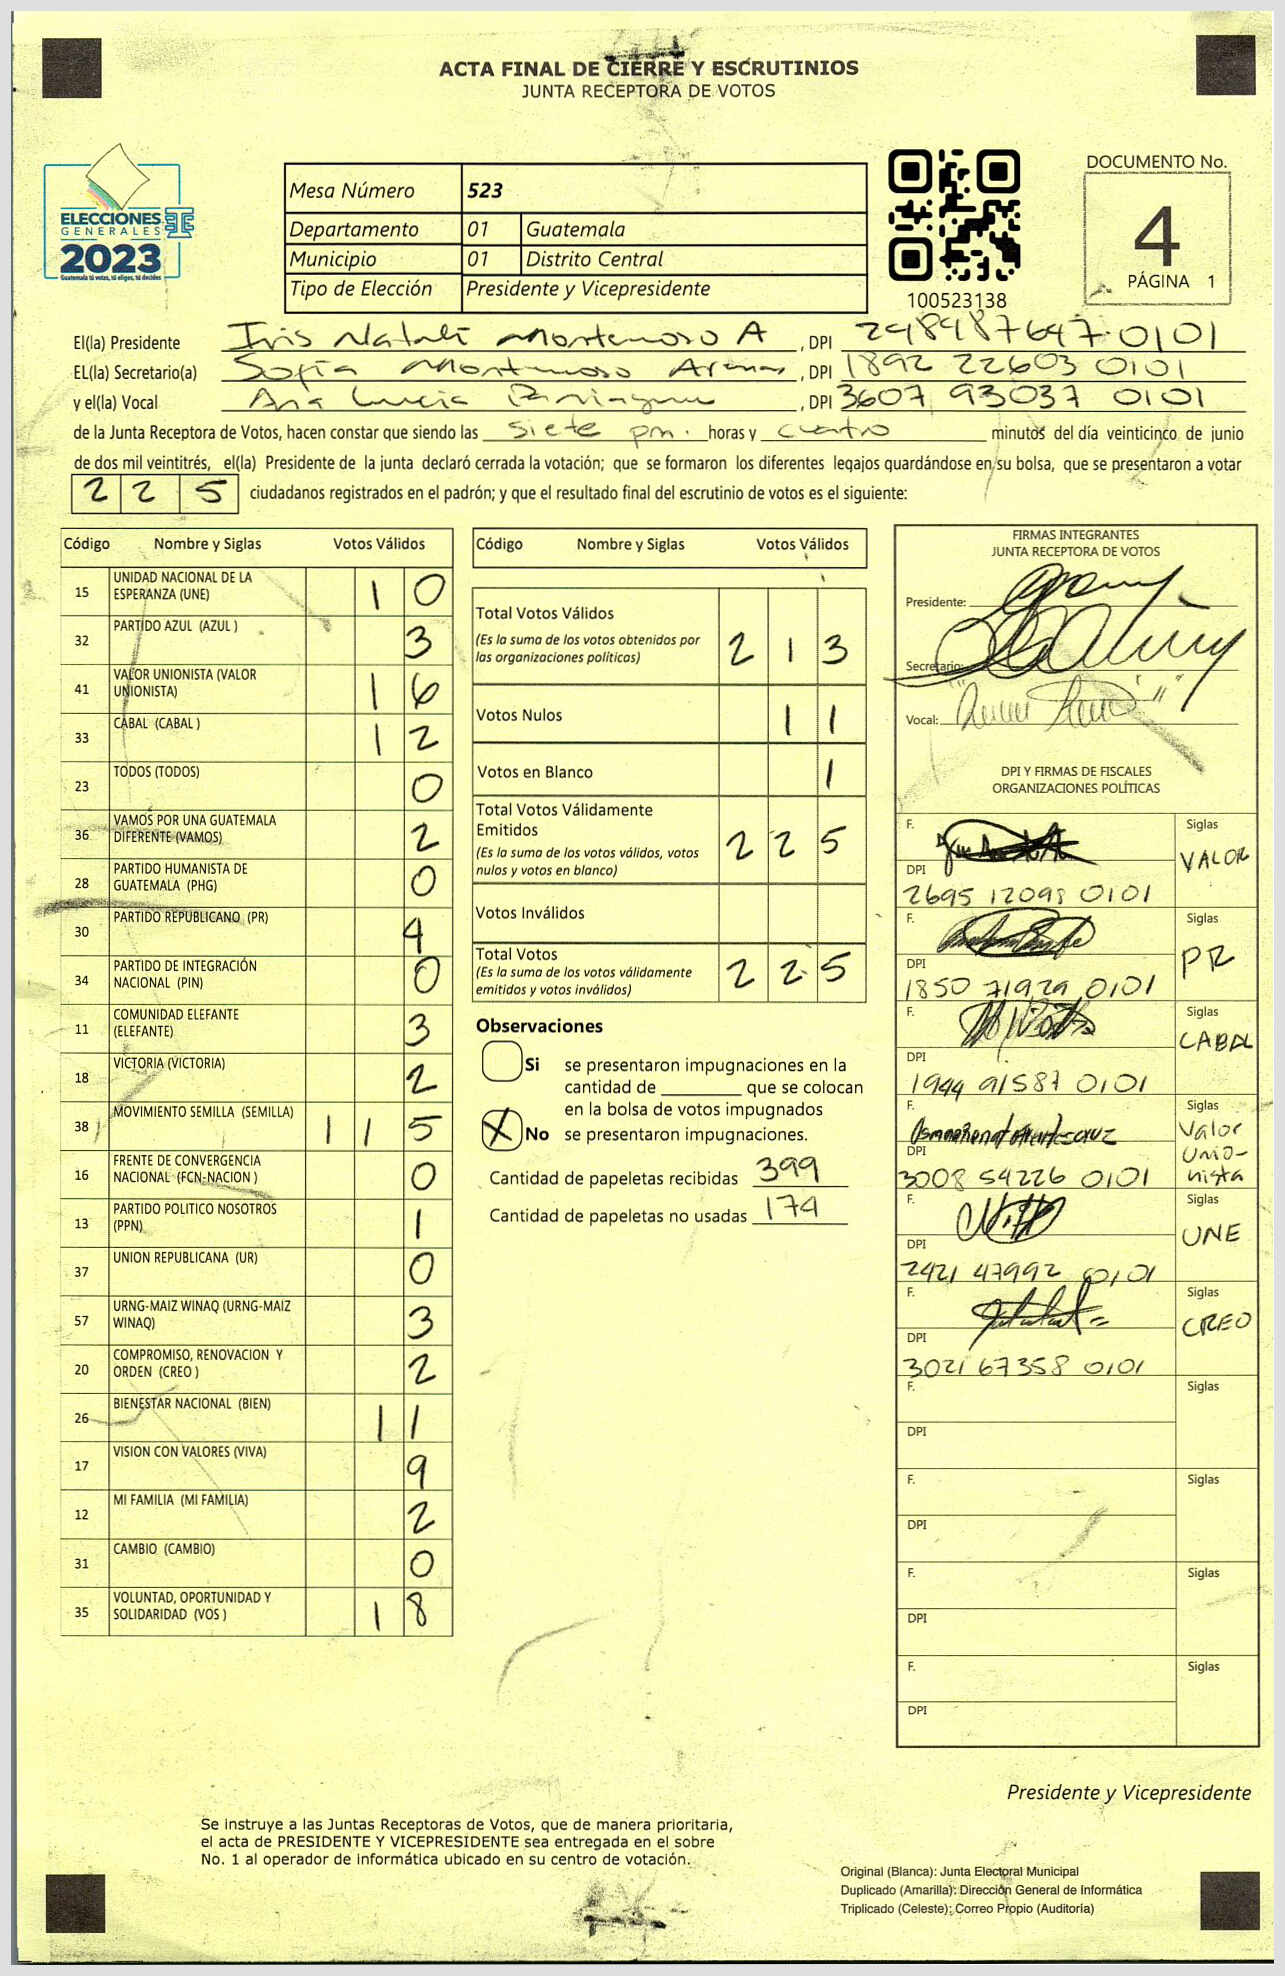 ACTA FINAL DE CIERRE Y ESCRUTINIOS
JUNTA RECEPTORA DE VOTOS
ELECCIONES
GENERALES
2023
Guatemala tú votas, tú eliges, tú decides
Mesa Número 523
Departamento 01 Guatemala
Municipio 01 Distrito Central
Tipo de Elección Presidente y Vicepresidente
100523138
DOCUMENTO No.
4
PÁGINA 1
El(la) Presidente Iris Natali Montenoso A , DPI 248487647 0101
EL(la) Secretario(a) Sofía Montenoso Arenas , DPI 1892 22603 0101
y el(la) Vocal Ana Lucia , DPI 3607 93037 0101
de la Junta Receptora de Votos, hacen constar que siendo las siete pm. horas y cuatro minutos del día veinticinco de junio
de dos mil veintitrés, el(la) Presidente de la junta declaró cerrada la votación; que se formaron los diferentes legajos guardándose en su bolsa, que se presentaron a votar
2 2 5 ciudadanos registrados en el padrón; y que el resultado final del escrutinio de votos es el siguiente:
Código Nombre y Siglas Votos Válidos
15 UNIDAD NACIONAL DE LA ESPERANZA (UNE) 1 0
32 PARTIDO AZUL (AZUL ) 3
41 VALOR UNIONISTA (VALOR UNIONISTA) 1 6
33 CABAL (CABAL ) 1 2
23 TODOS (TODOS) 0
36 VAMOS POR UNA GUATEMALA DIFERENTE (VAMOS) 2
28 PARTIDO HUMANISTA DE GUATEMALA (PHG) 0
30 PARTIDO REPUBLICANO (PR) 4
34 PARTIDO DE INTEGRACIÓN NACIONAL (PIN) 0
11 COMUNIDAD ELEFANTE (ELEFANTE) 3
18 VICTORIA (VICTORIA) 2
38 MOVIMIENTO SEMILLA (SEMILLA) 1 1 5
16 FRENTE DE CONVERGENCIA NACIONAL (FCN-NACION ) 0
13 PARTIDO POLITICO NOSOTROS (PPN) 1
37 UNION REPUBLICANA (UR) 0
57 URNG-MAIZ WINAQ (URNG-MAIZ WINAQ) 3
20 COMPROMISO, RENOVACION Y ORDEN (CREO ) 2
26 BIENESTAR NACIONAL (BIEN) 1 1
17 VISION CON VALORES (VIVA) 9
12 MI FAMILIA (MI FAMILIA) 2
31 CAMBIO (CAMBIO) 0
35 VOLUNTAD, OPORTUNIDAD Y SOLIDARIDAD (VOS ) 1 8
Código Nombre y Siglas Votos Válidos
Total Votos Válidos 2 1 3
(Es la suma de los votos obtenidos por
las organizaciones políticas)
Votos Nulos 1 1
Votos en Blanco 1
Total Votos Válidamente
Emitidos 2 2 5
(Es la suma de los votos válidos, votos
nulos y votos en blanco)
Votos Inválidos
Total Votos 2 2 5
(Es la suma de los votos válidamente
emitidos y votos inválidos)
Observaciones
Si se presentaron impugnaciones en la
cantidad de ________ que se colocan
en la bolsa de votos impugnados
X No se presentaron impugnaciones.
Cantidad de papeletas recibidas 399
Cantidad de papeletas no usadas 174
FIRMAS INTEGRANTES
JUNTA RECEPTORA DE VOTOS
Presidente:
Secretario:
Vocal:
DPI Y FIRMAS DE FISCALES
ORGANIZACIONES POLÍTICAS
F. Siglas VALOR
DPI 2695 12098 0101
F. Siglas PR
DPI 1850 71929 0101
F. Siglas CABAL
DPI 1944 91587 0101
F. Siglas Valor Unio-nista
DPI 3008 54226 0101
F. Siglas UNE
DPI 2421 47992 0101
F. Siglas CREO
DPI 3021 67358 0101
F. Siglas
DPI
F. Siglas
DPI
F. Siglas
DPI
F. Siglas
DPI
Presidente y Vicepresidente
Se instruye a las Juntas Receptoras de Votos, que de manera prioritaria,
el acta de PRESIDENTE Y VICEPRESIDENTE sea entregada en el sobre
No. 1 al operador de informática ubicado en su centro de votación.
Original (Blanca): Junta Electoral Municipal
Duplicado (Amarilla): Dirección General de Informática
Triplicado (Celeste): Correo Propio (Auditoría)